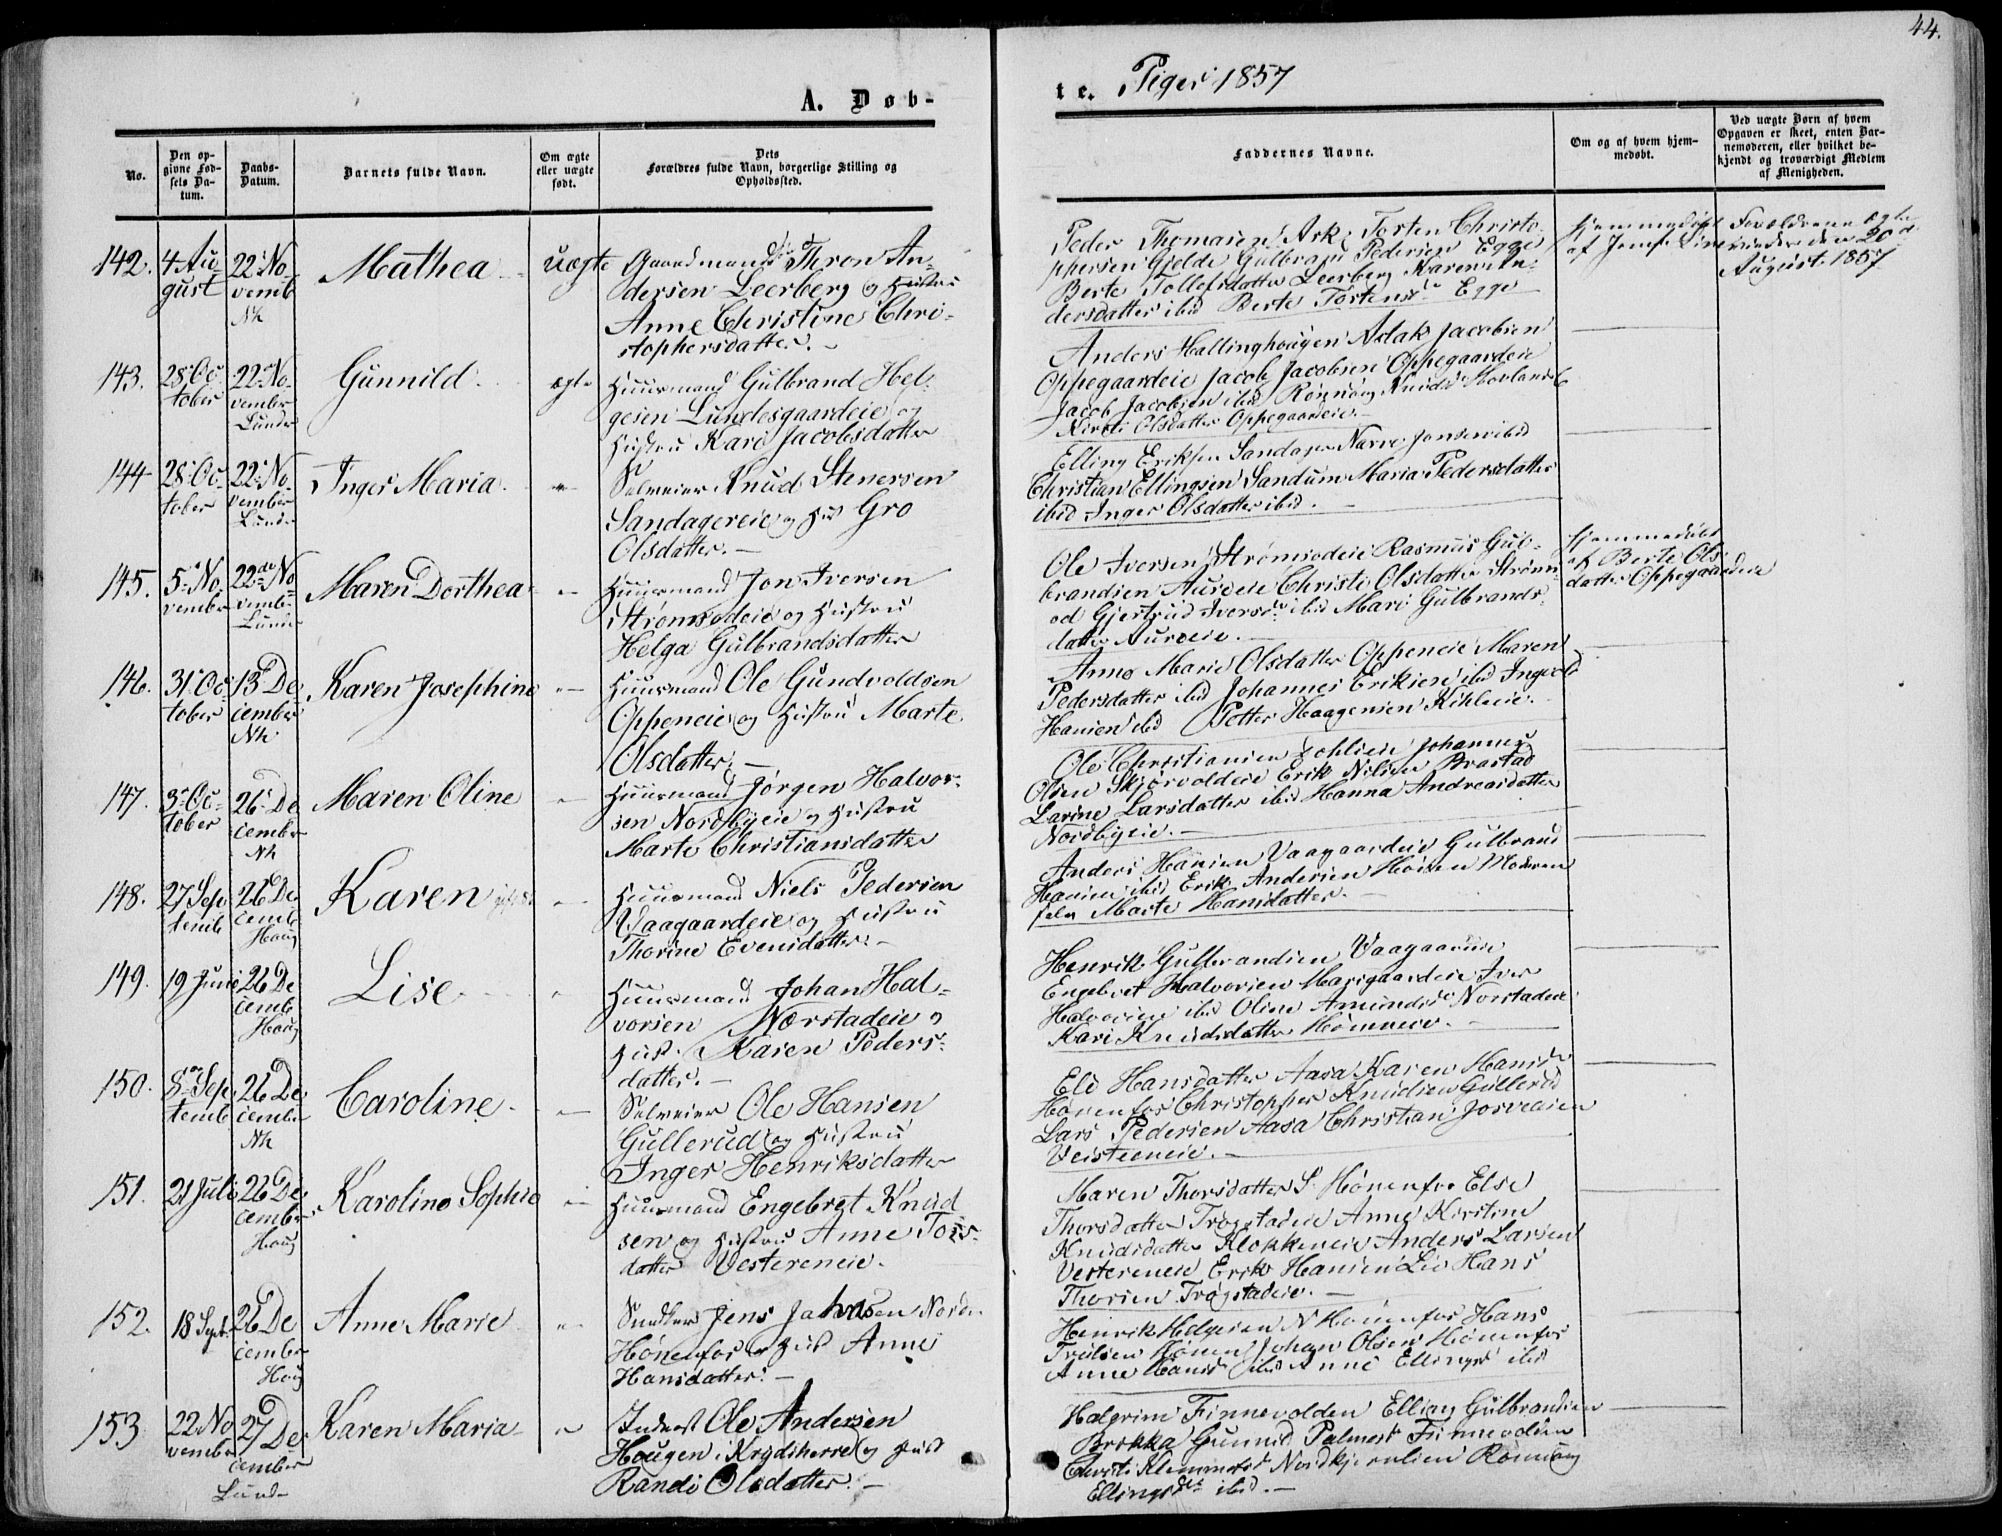 44.
A. Døb-
te. Piger 1857
No.
Den op-
givne Fød-
sels Da-
tum.
Daabs-
Datum.
Barnets fulde Navn.
Om ægte
eller uægte
født.
Dets
Forældres fulde Navn, borgerlige Stilling og
Opholdssted.
Faddernes Navne.
Om og af hvem hjem-
medøbt.
Ved uægte Børn af hvem
Opgaven er skeet, enten Bar-
nemoderen, eller hvilket be-
kjendt og troværdigt Medlem
af Menigheden.
142. 4 Au-
gust
22 No-
vemb
Nh
Mathea
uægte
Gaardmand Thron An-
dersen Leerberg og Hustru
Anne Christine Chri-
stophersdatter. -
Peder Thomasen Ask, Torsten Christo-
phersen Gjelde Gulbrand Pedersen Egge
Berte Tollefsdatter Leerberg Karen An-
dersdatter ibid Berte Torstens Egge
Hjemmedøbt
af
Forældrene ægte
viede den 20
August. 1857
143. 28 Oc-
tober
22 No-
vember
Lunder
Gunnild
ægte
Huusmand Gulbrand Hel-
gesen Lundesgaardeie og
Hustru Kari Jacobsdatter
Anders Hallinghougen Aslak Jacobsen
Oppegaardeie Jacob Jacobsen Oppegaardeie
Jacob Jacobsen ibid Rønnaug Knuds
Kirsti Olsdatter Oppegaardeie. -
144 28 Oc-
tober
22 No-
vember
Lunder
Inger Maria
Selveier Knud Stenersen
Sandagereie og Hus Gro
Olsdatter. -
Elling Eriksen Sandager Narve Jonsen ibid
Christian Ellingsen Sandum Maria Pedersdatter
ibid Inger Olsdatter ibid. -
145. 5 No-
vember
22de No-
vembr
Lunder
Maren Dorthea
Huusmand Jon Iversen
Strømsodeie og Hustru
Helga Gulbrandsdatter
Ole Iversen Strømsodeie Rasmus Gul-
brandsen Aureeie Christi Olsdatter Strøms-
od Gjertrud Ivers ibid Mari Gulbrands-
datter Aureeie. -
Hjemmedøbt
af Berte Ols-
datter Oppegaardeie
146. 31 Oc-
tober
13 De-
cember
Nh
Karen Josephine
Huusmand Ole Gundvoldsen
Oppeneie og Hustru Marte
Olsdatter. -
Anne Marie Olsdatter Oppeneie Maren
Pedersdatter ibid Johannes Eriksen ibid Ingvold
Hansen ibid Petter Haagensen Kihleeie.
147. 3 Oc-
tober
26 De-
cember
Nh
Maren Oline
Huusmand Jørgen Halvor-
sen Nordbyeie og Hustru
Marte Christiansdatter
Ole Christiansen Johannes
Olsen Skjørvoldeie Erik Nilsen Brastad
Larine Larsdatter ibid Hanna Andreasdatter
Nordbyeie. -
148. 27 Sep-
temb
26 De-
cemb
Houg
Karen
Huusmand Niels Pedersen
Vaagaardeie og Hustru
Thorine Evensdatter. -
Anders Hansen Vaagaardeie Gulbrand
Hansen ibid Erik Andersen Hønen Moderen
selv Marte Hansdatter. -
149. 19 Juni
26 De-
cemb
Houg
Lise
Huusmand Johan Hal-
vorsen Nærstadeie og
Hust. Karen Peders-
datter. -
Henrik Gulbrandsen Vaagaardeie
Engebret Halvorsen Marigaardeie Iver
Halvorsen ibid Oline Amunds Norstadeie
Kari Knudsdatter Hønneeie. -
150. 8 Sep-
temb
26 De-
cember
Nh
Caroline
Selveier Ole Hansen
Gullerud og Hustru
Inger Henriksdatter
Eli Hansdatter Aasa Karen Hans
Hønenfos Christopher Knudsen Gullerud
Lars Pedersen Aasa Christian
Veisteeneie. -
151. 21 Juli
26 De-
cember
Houg
Karoline Sophie
Huusmand Engebret Knud-
sen og Hustru Anne Tors-
datter Vestereneie.
Maren Thorsdatter S. Hønenfos Else
Thorsdatter Trøgstadeie Anne Kirstine
Knudsdatter Klokkeneie Anders Larsen
Vestereneie Erik Hansen Hans
Thorsen Trøgstadeie. -
152. 18 Sept.
26 De-
cember
Houg
Anne Marie
Snedker Jens Johnsen Nordr.
Hønenfos og Hust Anne
Hansdatter. -
Henrik Helgesen N Hønenfos Hans
Hønen Johan Olsen Hønenfos
Anne Hans ibid Anne Ellings ibid
153 22 No-
vember
27 De-
cember
Lunder
Karen Maria
Inderst Ole Andersen
Hougen i Krydsherred og Hust
Randi Olsdatter. -
Halgrim Finnevolden Elling Gulbrandsen
Brokka Gunnild Palmes Finnevolden
Christi Nordkjernslien Rønnaug
Ellingsdtr ibid. -